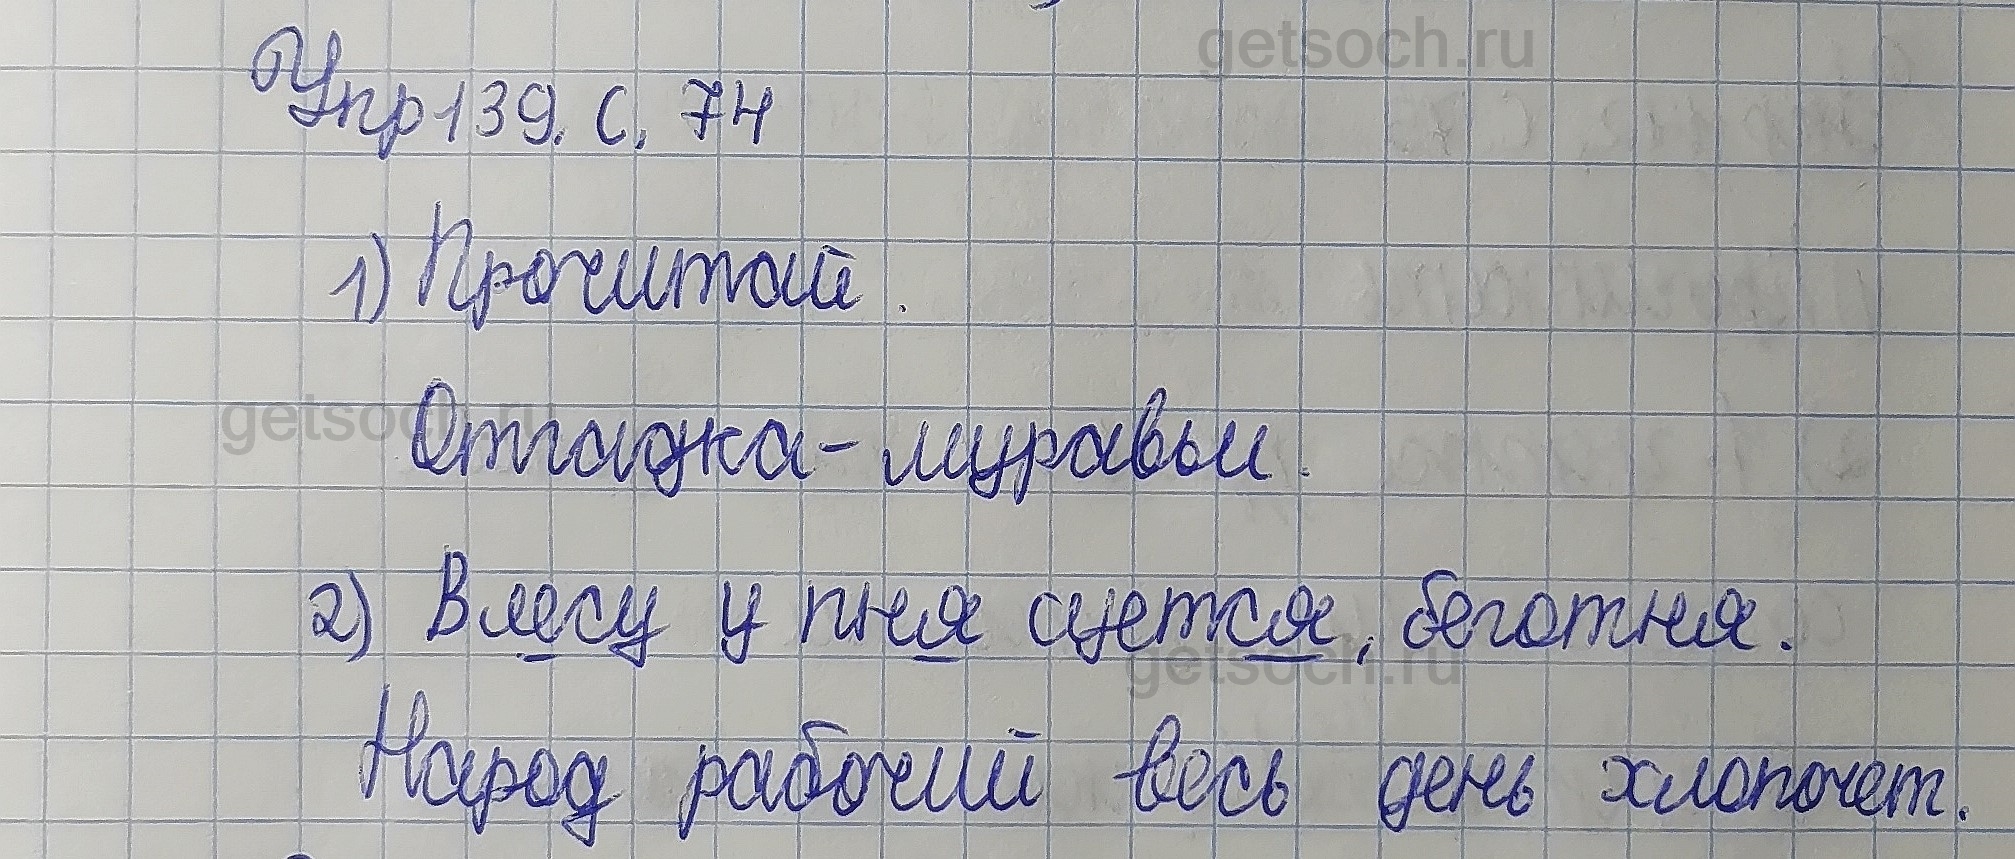 getsoch.ru
Упр 139. С. 74
1) Прочитай.
getsoch.ru
Отгадка - муравьи.
2) В лесу у пня суется, беготня.
getsoch.ru
Народ рабочий весь день хлопочет.